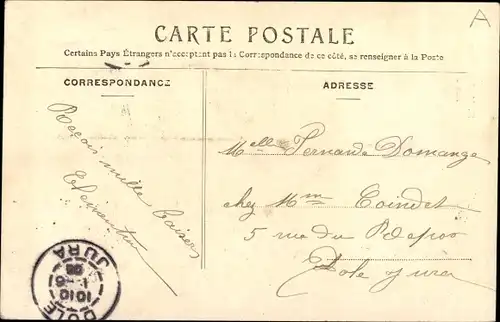 A
CARTE POSTALE
Certains Pays Étrangers n'acceptant pas la Correspondance de ce côté, se renseigner à la Poste
CORRESPONDANCE
ADRESSE
Reçois mille baisers
Melle Fernande Domange
chez Mme Coindet
5 rue du
Dole Jura
DOLE
10 10
JURA